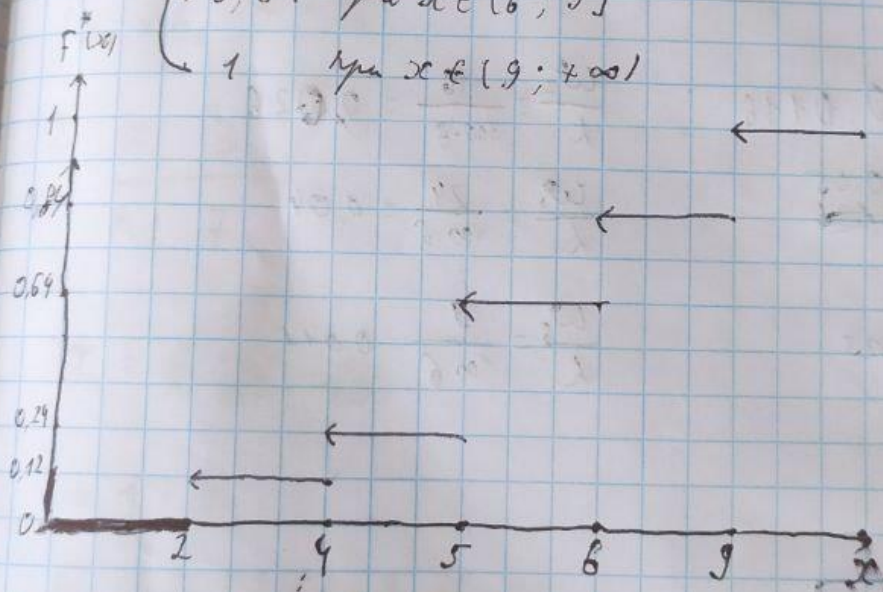 при x ∈ (6; 9]
1 при x ∈ (9; +∞)
F*(x)
1
0,84
0,64
0,24
0,12
0
2 4 5 6 9 x